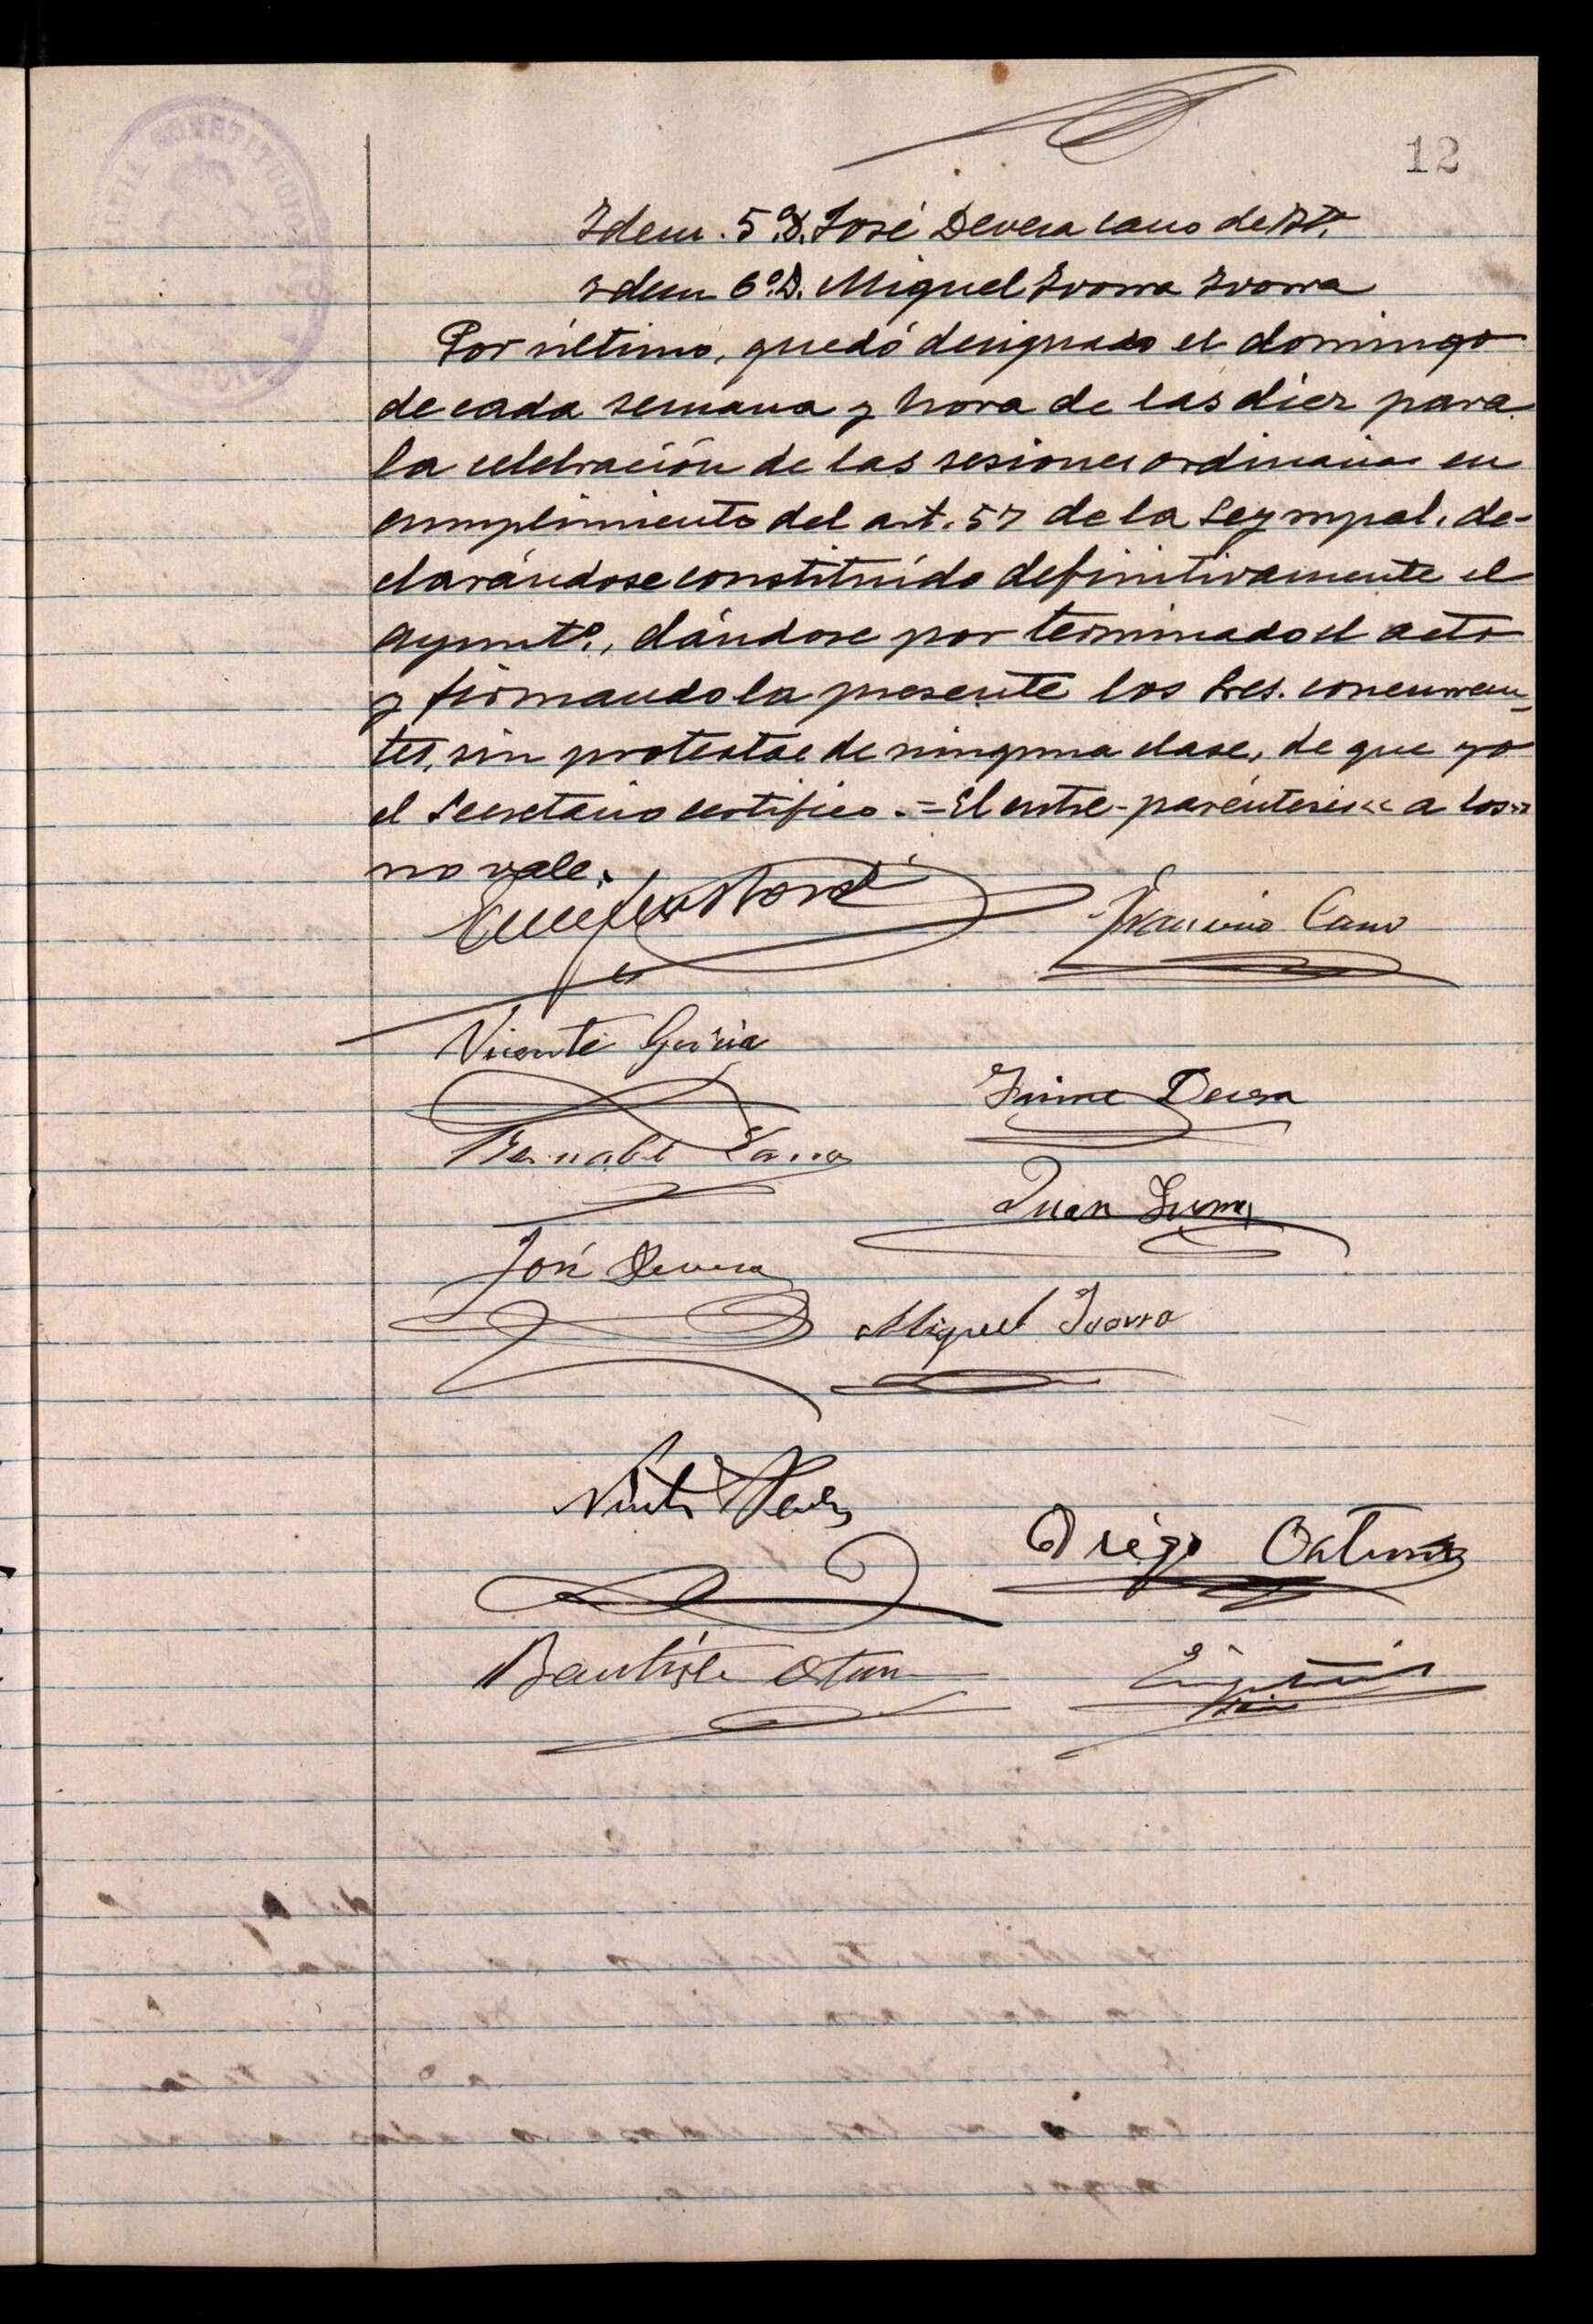 12
Idem. 5º D. José Devesa Cano de Bta.
Idem 6º D. Miguel Ivorra Ivorra
Por último, quedó designado el domingo
de cada semana y hora de las diez para
la celebración de las sesiones ordinarias en
cumplimiento del art. 57 de la Ley mpal. de-
clarándose constituído definitivamente el
Ayuntº., dándose por terminado el acto
y firmando la presente los Sres. concurren-
tes, sin protestas de ninguna clase, de que yo
el Secretario certifico.=El entre-paréntesis "a los"
no vale.
Cano
Vicente García
Jaime Devesa
Bernabé
Juan
José Devesa
Miguel Ivorra
Diego
Bautista